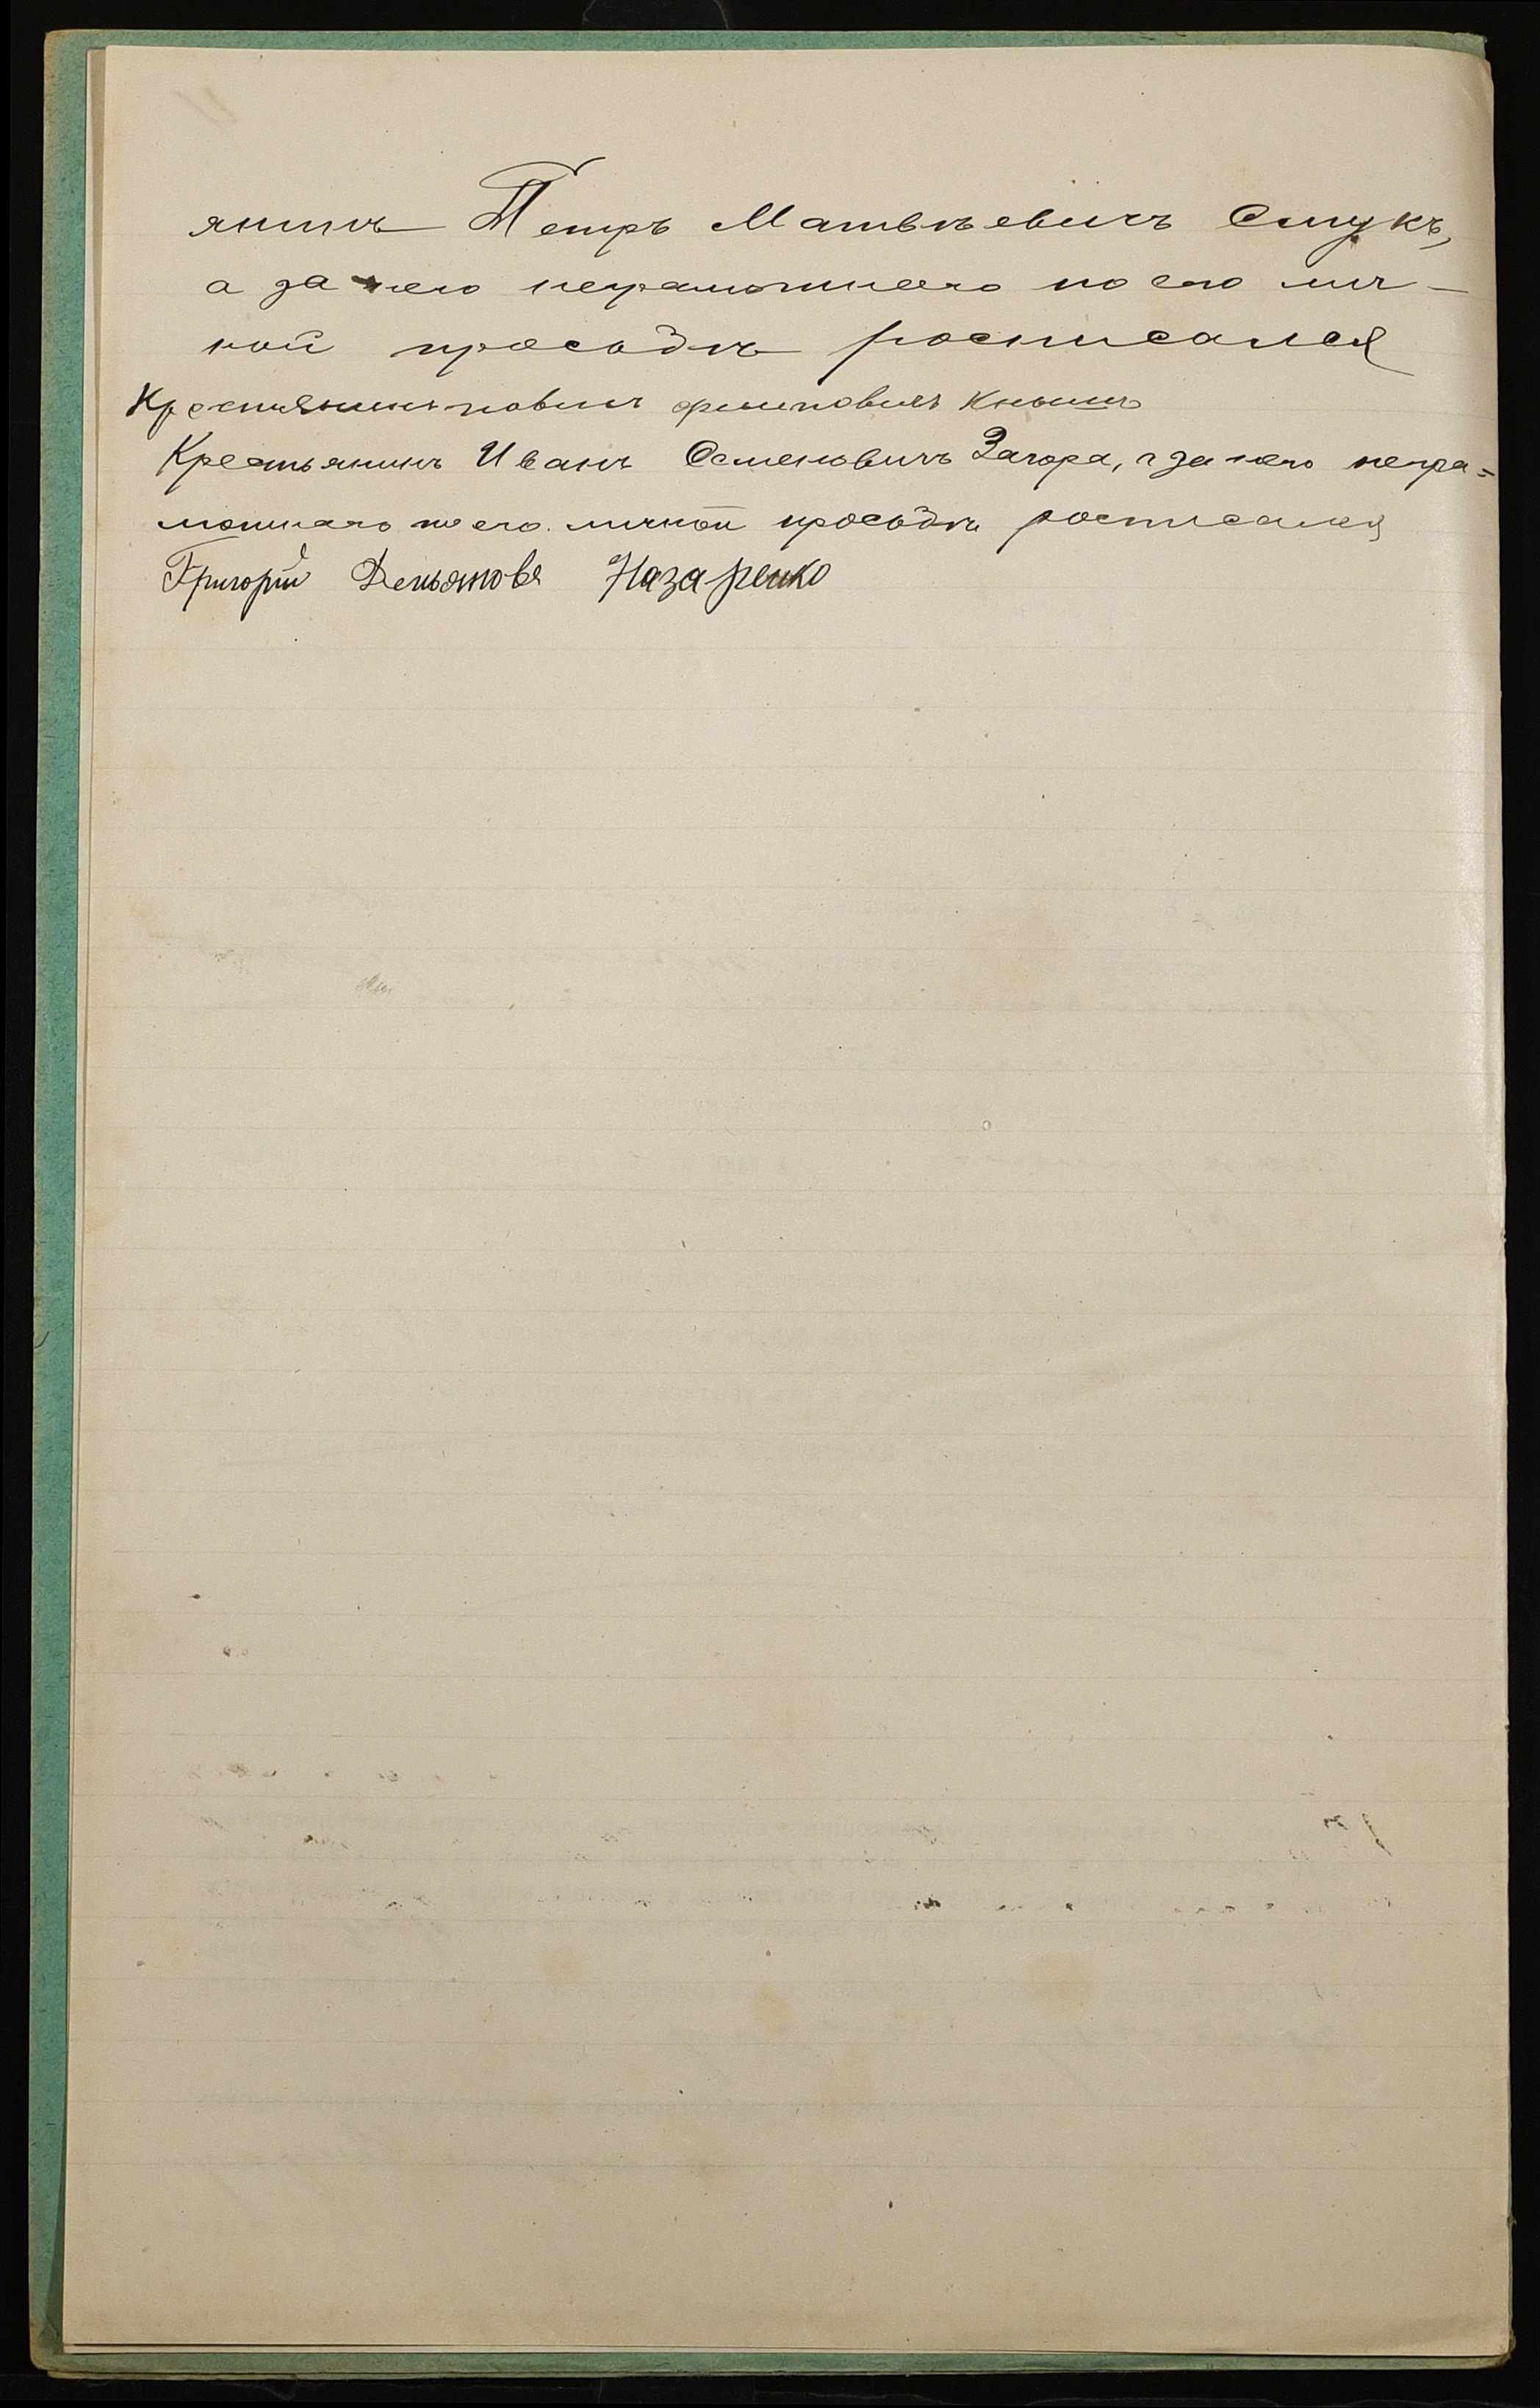 янинъ Петръ Матвѣевичъ Смукъ,
а за него неграмотнаго по его лич-
ной просьбѣ росписался
Крестянинъ филиповичъ Кнышъ
Крестьянинъ Иванъ Семеновичъ Загора, а за него негра=
мотнаго по его личной просьбѣ росписался
Григорій Демьяновъ Назаренко